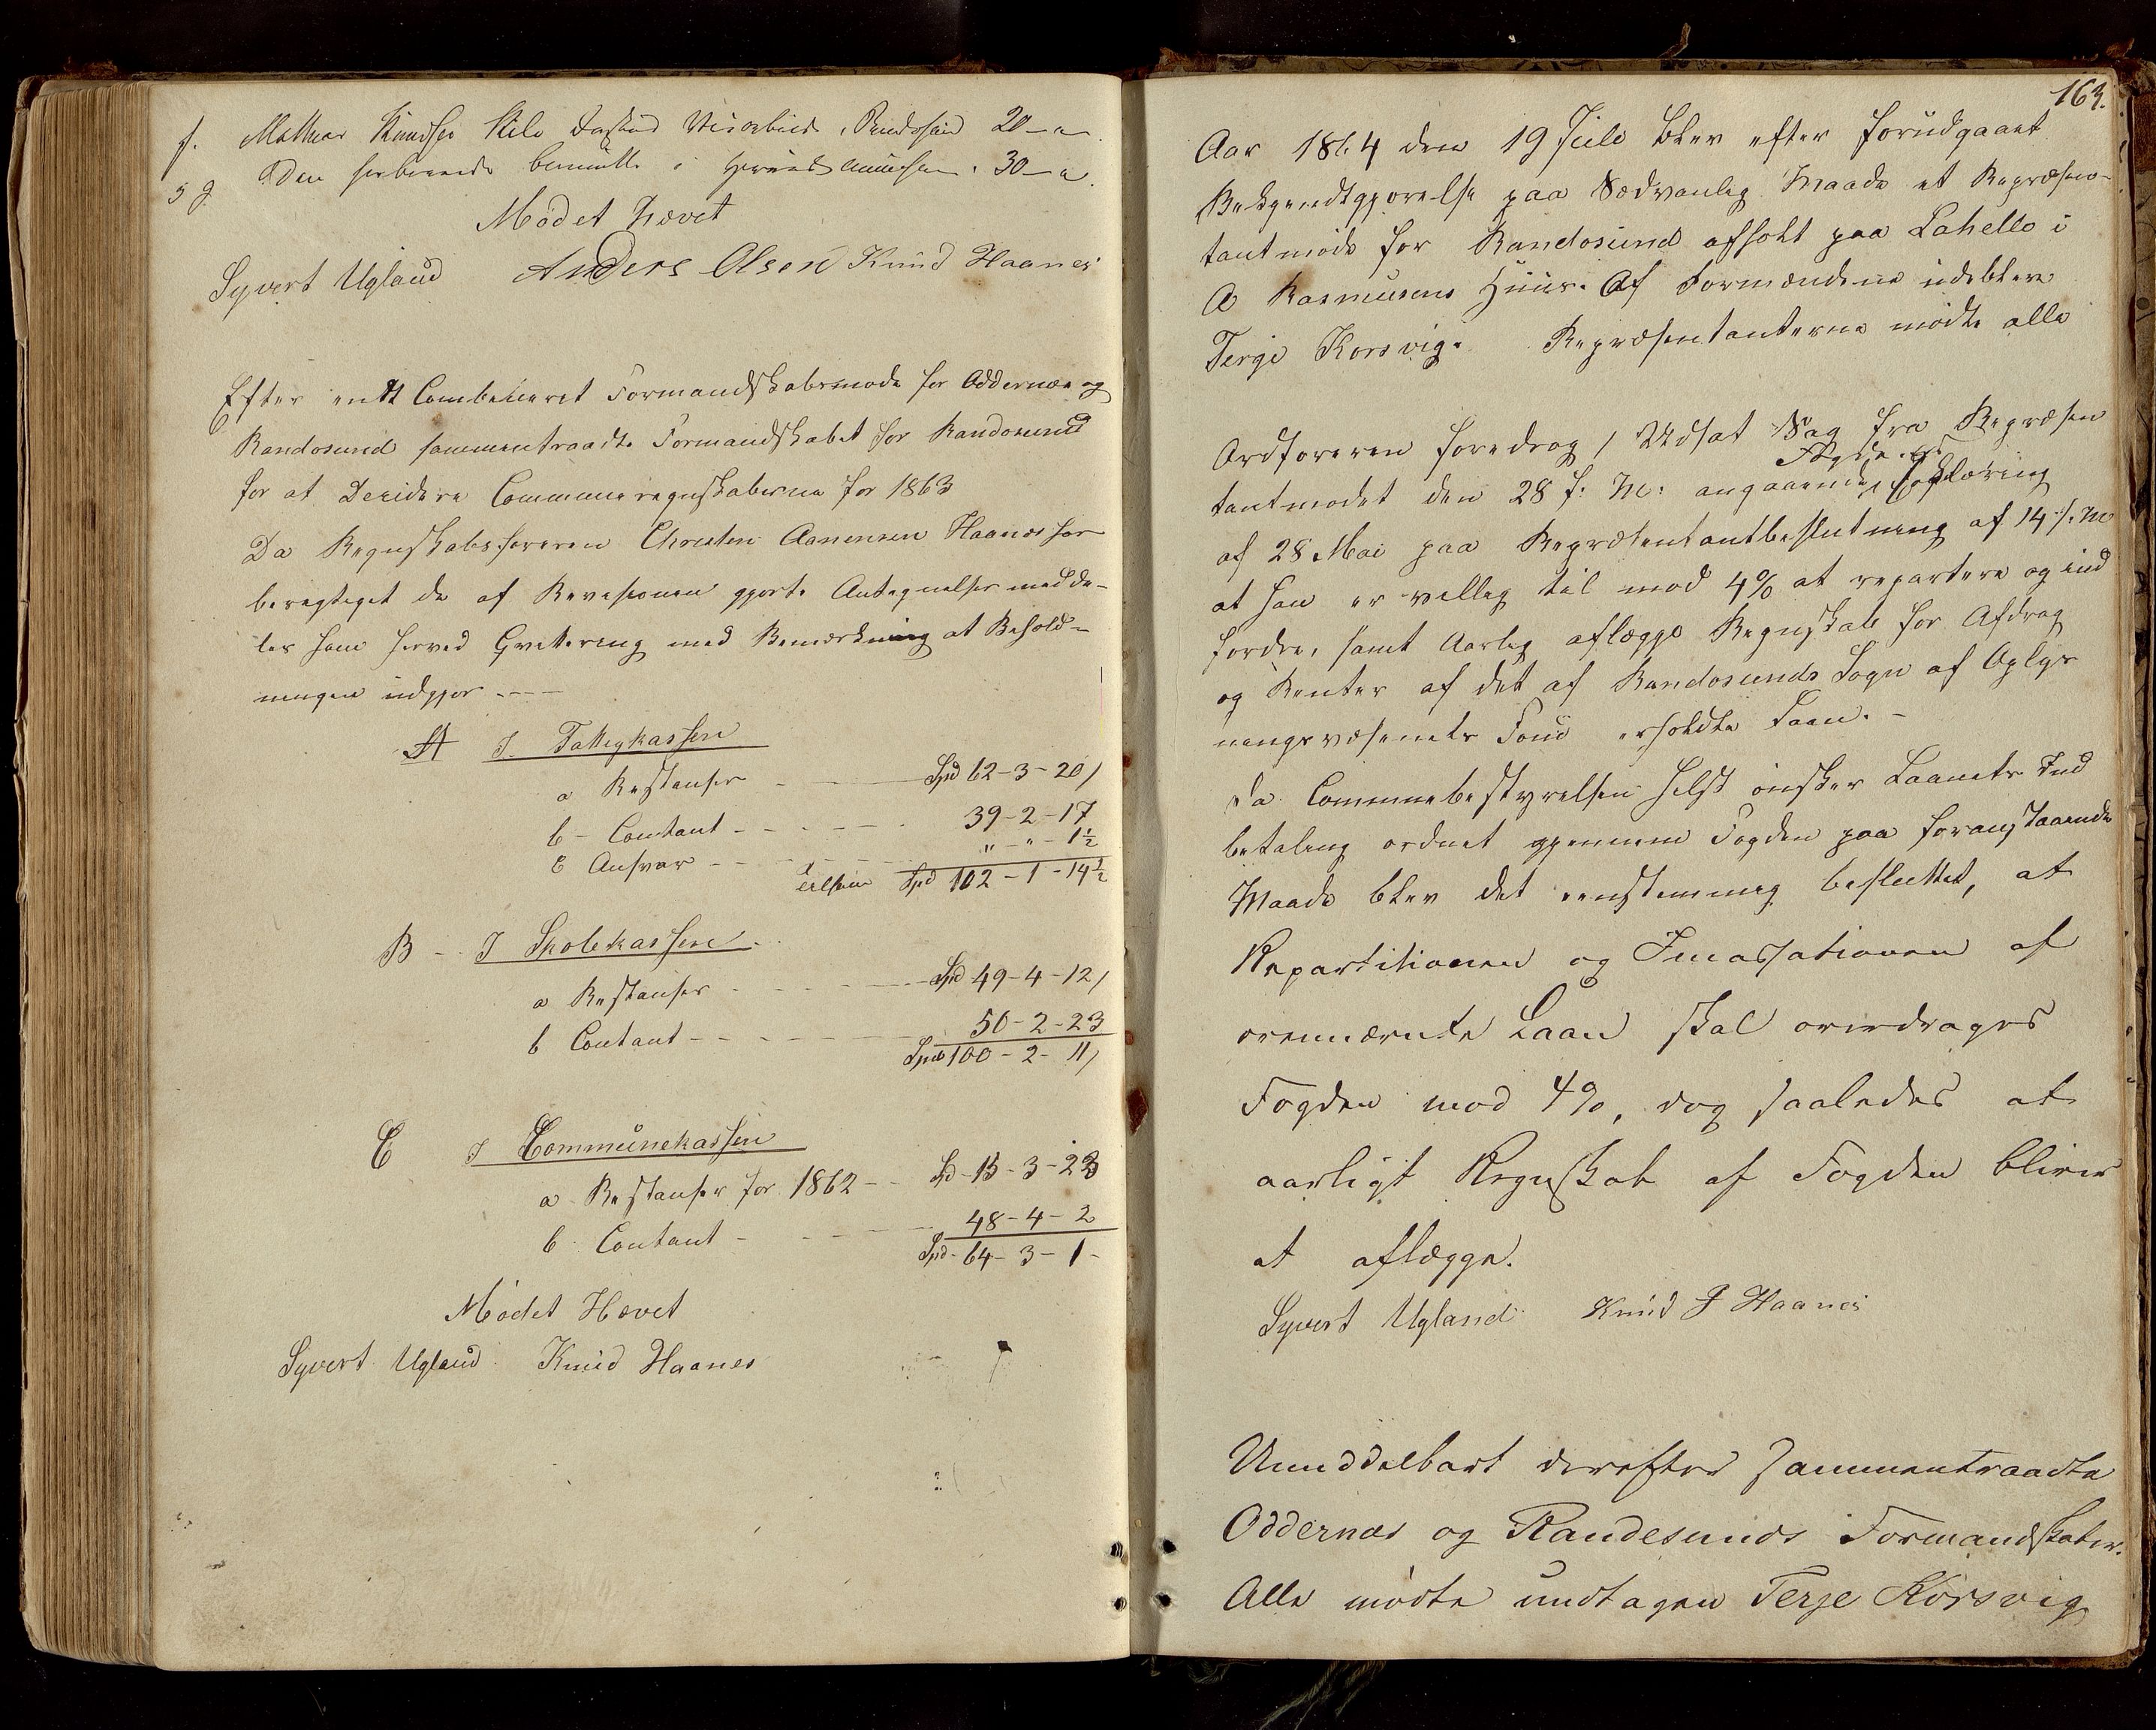 f. Mathias Knudsen Kile Veiarbeide, Randøsund 20 – "
5 g Den forberørte 30 – "
Mødet hævet
Syvert Ugland Anders Olsen Knud Haanes
Efter endt Combineret Formandskabsmøde for Oddernæs og
Randøsund sammentraadte Formandskabet for Randøsund
for at Decidere Communeregnskaberne for 1863
Da Regnskabsføreren Christen Aanensen Haanes har
berigtiget de af Revisionen gjorte Antegnelser medde-
les ham herved Qvitering med Bemærkning at Behold-
ningen udgjør ----
A I Fattigkassen
a Restanser - - Spd 62-3-20
b - Contant - - - - 39-2-17
C Ansvar - - - " - " - 1½
tilsam̄en Spd 102-1-14½
B - I Skolekassen
a Restanser - - - - Spd 49-4-12
b Contant - - - - 50-2-23
Spd 100-2-11
C I Communekassen
a Restanser for 1862 - - Spd 15-3-23
b Contant - - - - 48-4-2
Spd 64-3-1 -
Mødet Hævet
Syvert Ugland Knud Haanes
163.
Aar 1864 den 19 Juli blev efter forudgaaet
Bekjendtgjørelse paa Sædvanlig Maade et Repræsen-
tantmøde for Randøsund afholt paa Lahelle i
A Rasmusens Huus. Af Formændene udeblev
Terje Korsvig. Repræsentanterne mødte alle
Ordføreren foredrog, Udsat Sag fra Repræsen
tantmødet den 28 f: M: angaaende Fogdens Erklæring
af 28 Mai paa Repræsentantbeslutning af 14 s. M
at han er villig til mod 4% at repartere og ind
fordre, samt Aarlig aflægge Regnskab for Afdrag
og Renter af det af Randøsunds Sogn af Oplys
ningsvæsenets Fond erholdte Laan. -
Da Communebestyrelsen helst ønsker Laanets Ind
betaling ordnet gjennem Fogden paa foranstaaende
Maade blev det eenstemmig besluttet, at
Repartitionen og Incassationen af
ovennævnte Laan skal overdrages
Fogden mod 4%, dog saaledes at
aarligt Regnskab af Fogden bliver
at aflægge.
Syvert Ugland Knud J Haanes
Umiddelbart derefter sammentraadte
Oddernæs og Randesunds Formandskaber.
Alle mødte undtagen Terje Korsvig